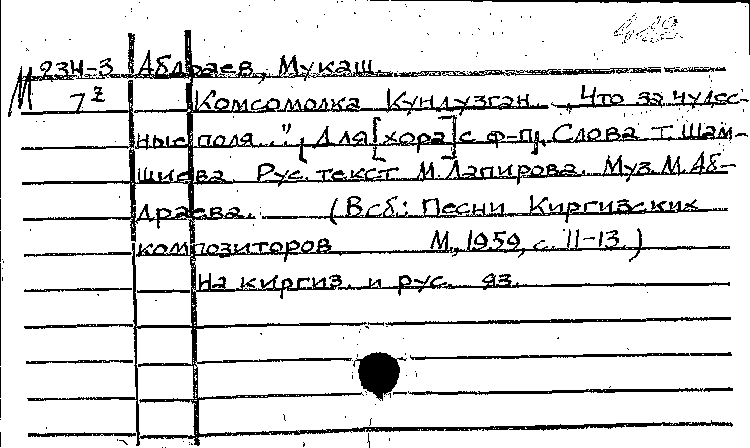 М 234-3 Абдраев, Мукаш.
7² Комсомолка Кундузган. „Что за чудес-
ные поля..", Для [хора] с ф-п. Слова Т. Шам-
шиева. Рус. текст М. Лапирова. Муз. М. Аб-
драева. (В сб.: Песни Киргизских
композиторов. М., 1959, с. 11-13.)
На киргиз. и рус. яз.